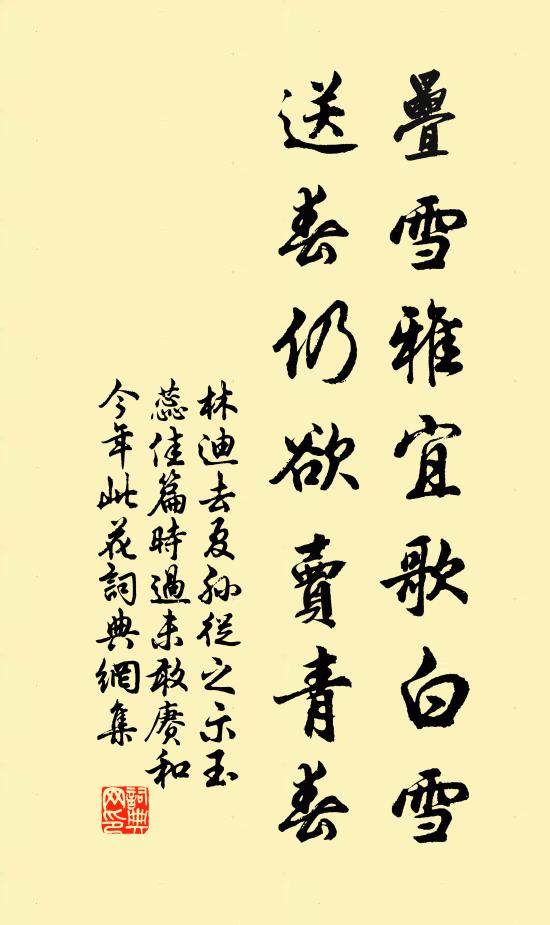 疊雪雅宜歌白雪
送春仍欲賣青春
林迪去夏孙從之示玉
蕊佳篇時過未敢赓和
今年此花詞典網集
詞典网印